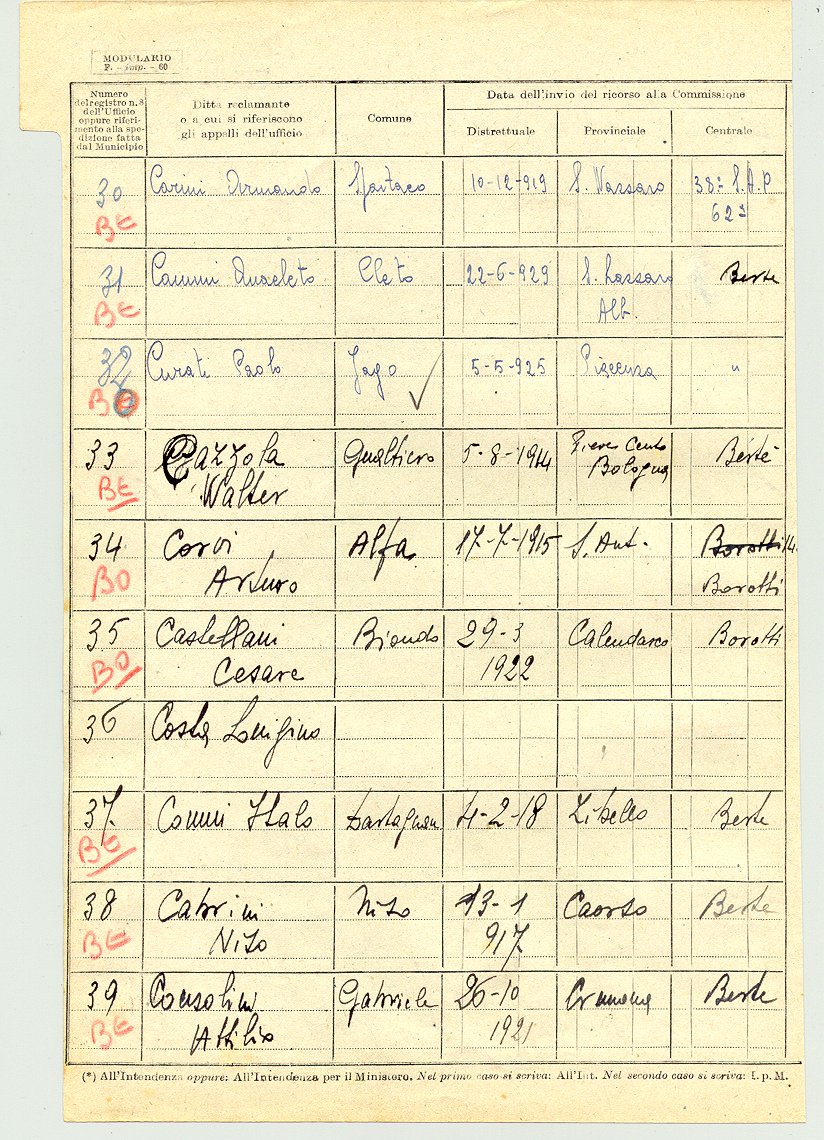 MODULARIO
F. - imp. - 60
Numero
del registro n. 8
dell'Ufficio
oppure riferi-
mento alla spe-
dizione fatta
dal Municipio
Ditta reclamante
o a cui si riferiscono
gli appalli dell'ufficio
Comune
Data dell'invio del ricorso alla Commissione
Distrettuale
Provinciale
Centrale
30 Carini Armando Spartaco 10-12-919 S. 38ª S.A.P
BE 62ª
31 Cammi Anacleto Cleto 22-6-929 S. Lazzaro Berte
BE Alb.
32 Curati Paolo Jago 5-5-925 Piacenza "
BO
33 Gazzola Gualtiero 5-8-1914 Pieve Cento Bertè
BE Walter Bologna
34 Corvi Alfa 17-7-1915 S. Ant. Borotti 14.
BO Arturo Borotti
35 Castellani Biondo 29-3 Calendasco Borotti
BO Cesare 1922
36 Costa Luigino
37 Commi Italo Dartagnan 4-2-18 Zibello Berte
BE
38 Cabrini Niso 13-1 Caorso Berte
BE Niso 917
39 Consolini Gabriele 26-10 Cremona Berte
BE Attilio 1921
(*) All'Intendenza oppure: All'Intendenza per il Ministero. Nel primo caso si scriva: All'Int. Nel secondo caso si scriva: I. p. M.